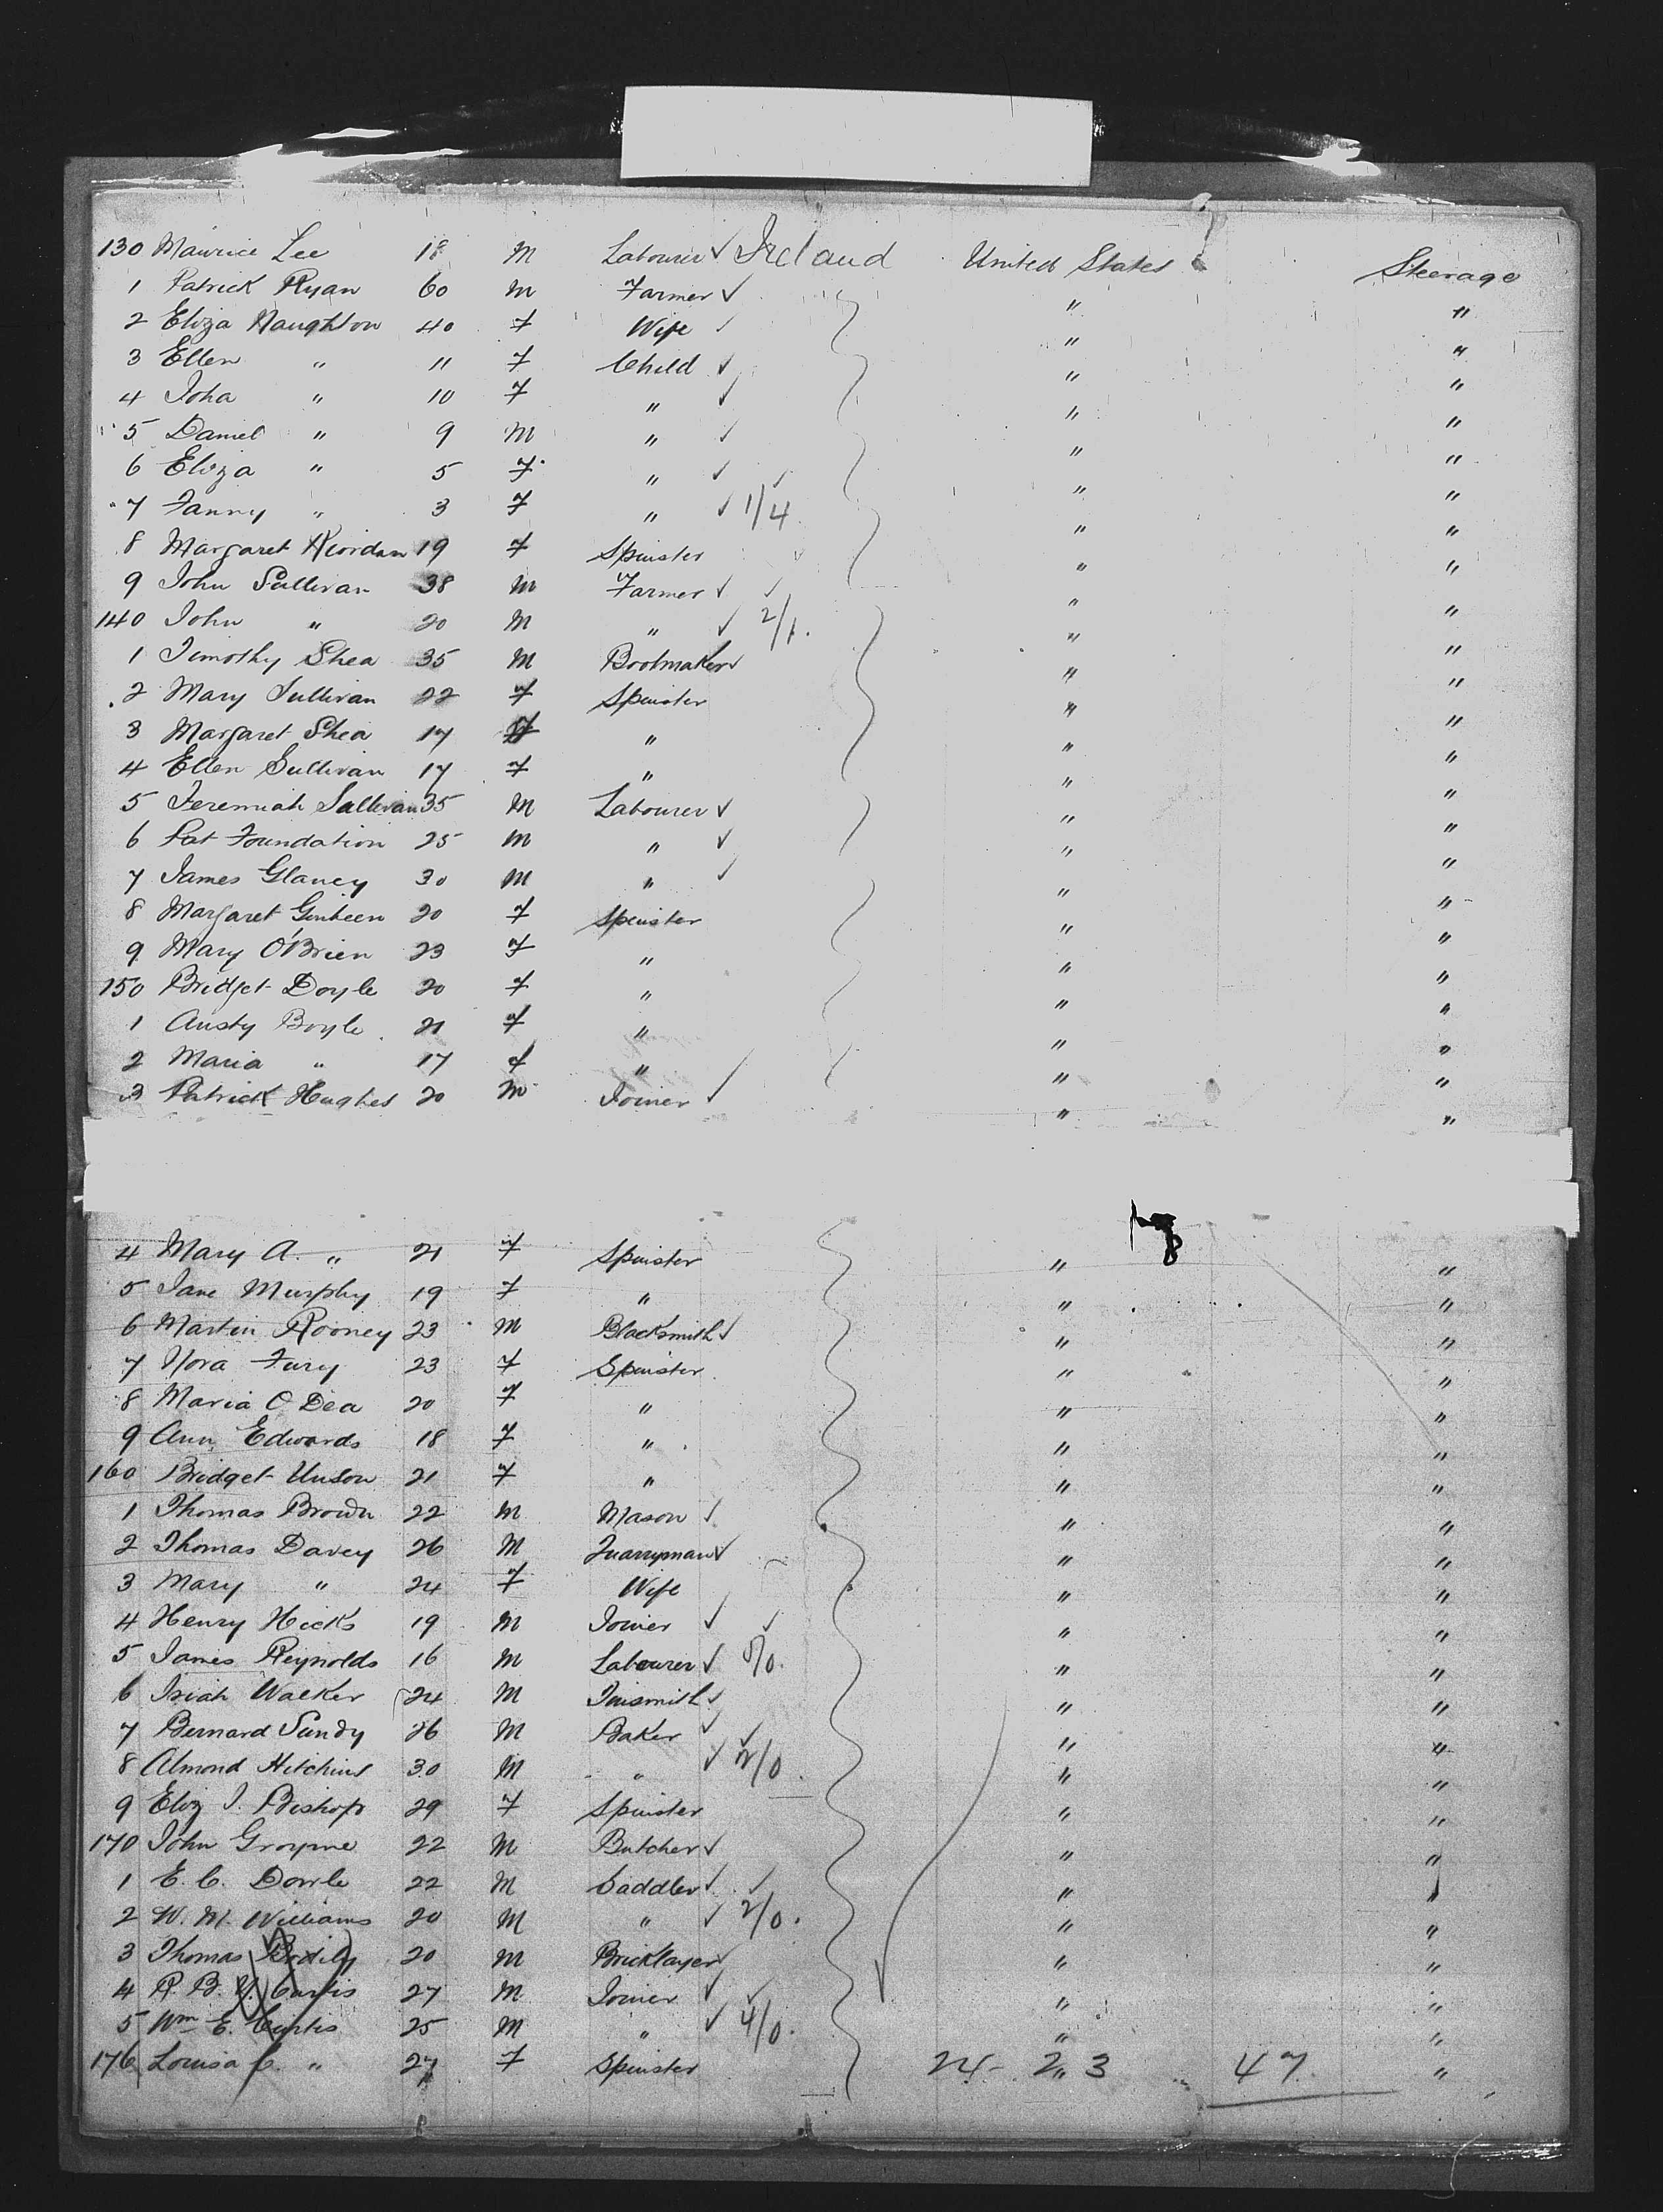 130 Maurice Lee 18 M Labourer ✓ Ireland United States Steerage
1 Patrick Ryan 60 M Farmer ✓ " "
2 Eliza Naughton 40 F Wife ✓ " "
3 Ellen " 11 F Child ✓ " "
4 Joha " 10 F " ✓ " "
5 Daniel " 9 M " ✓ " "
6 Eliza " 5 F " ✓ ✓ " "
7 Fanny " 3 F " ✓ 1/4 " "
8 Margaret Riordan 19 F Spinster " "
9 John Sullivan 38 M Farmer ✓ ✓ " "
140 John " 20 M " ✓ 2/1. " "
1 Timothy Shea 35 M Bootmaker ✓ " "
2 Mary Sullivan 22 F Spinster " "
3 Margaret Shea 17 F " " "
4 Ellen Sullivan 17 F " " "
5 Jeremiah Sullivan 35 M Labourer ✓ " "
6 Pat Foundation 25 M " ✓ " "
7 James Glancy 30 M " ✓ " "
8 Margaret 20 F Spinster " "
9 Mary O'Brien 23 F " " "
150 Bridget Doyle 20 F " " "
1 Austy Boyle 21 F " " "
2 Maria " 17 F " " "
3 Patrick Hughes 20 M Joiner ✓ " "
4 Mary A. " 21 F Spinster " "
5 Jane Murphy 19 F " " "
6 Martin Rooney 23 M Blacksmith ✓ " "
7 Nora Fury 23 F Spinster " "
8 Maria O Dea 20 F " " "
9 Ann Edwards 18 F " " "
160 Bridget 21 F " " "
1 Thomas Brown 22 M Mason ✓ " "
2 Thomas Davey 26 M Quarryman ✓ " "
3 Mary " 24 F Wife " "
4 Henry Hicks 19 M Joiner ✓ ✓ " "
5 James Reynolds 16 M Labourer ✓ 5/0. " "
6 Isiah Walker 24 M Tinsmith ✓ " "
7 Bernard Sandy 26 M Baker ✓ ✓ " "
8 Almond Hitchins 30 M " ✓ 2/0. " "
9 Eliz J. Bishop 29 F Spinster " "
170 John 22 M Butcher ✓ " "
1 E. C. Dowle 22 M Saddler ✓ ✓ " "
2 W. M. Williams 20 M " ✓ 2/0. " "
3 Thomas 20 M Bricklayer ✓ " "
4 R. B. Curtis 27 M Joiner ✓ ✓ " "
5 Wm E. Curtis 25 M " ✓ 4/0. " "
176 Louisa C. " 27 F Spinster 24 - 23 47 "